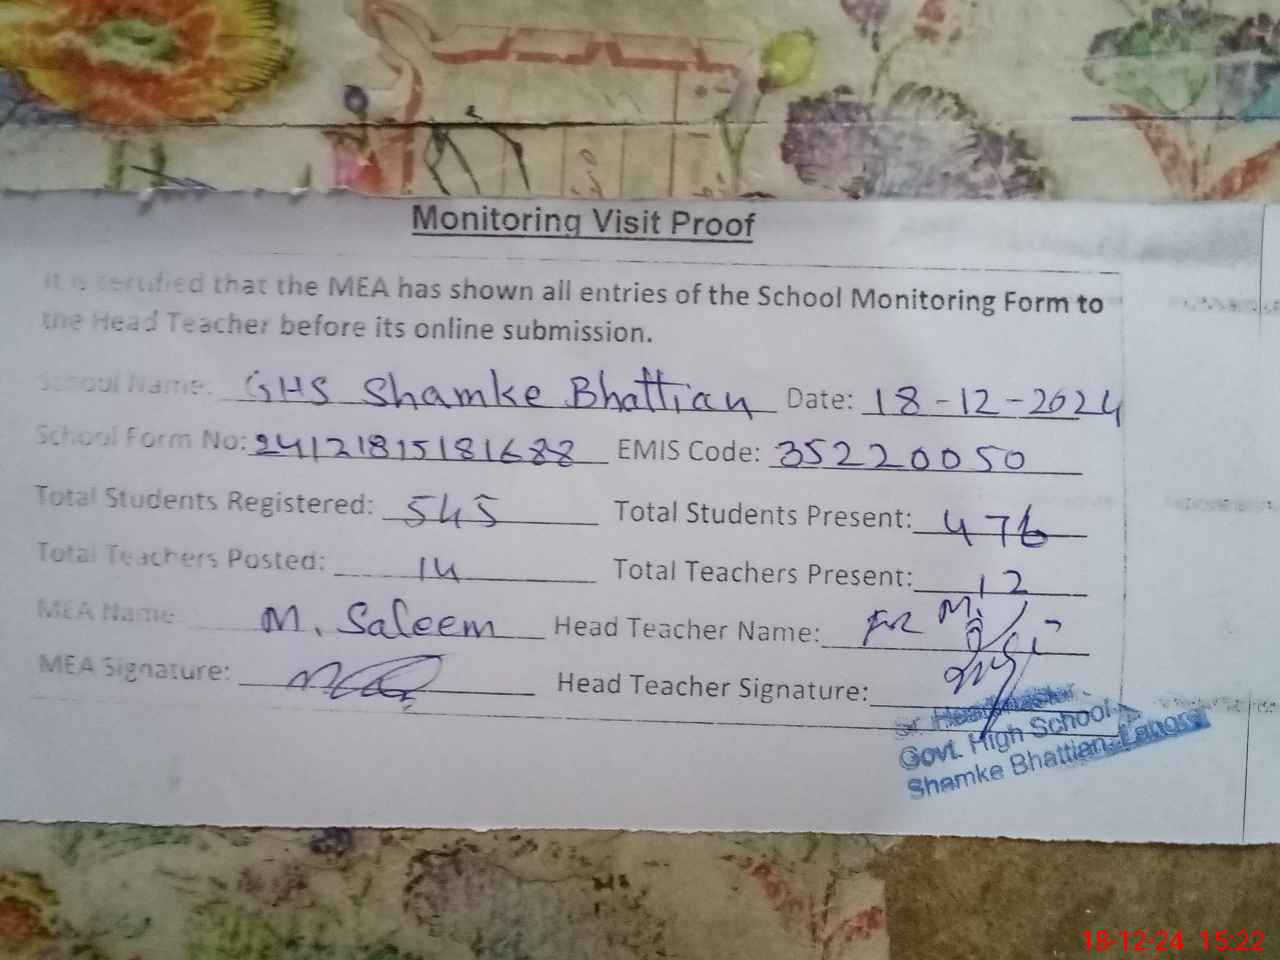 Monitoring Visit Proof
It is certified that the MEA has shown all entries of the School Monitoring Form to
the Head Teacher before its online submission.
School Name: GHS Shamke Bhattian Date: 18-12-2024
School Form No: 24121815181688 EMIS Code: 35220050
Total Students Registered: 545 Total Students Present: 476
Total Teachers Posted: 14 Total Teachers Present: 12
MEA Name M. Saleem Head Teacher Name:
MEA Signature: Head Teacher Signature:
Sr. Headmaster
Govt. High School
Shamke Bhattian, Lahore
18-12-24 15:22